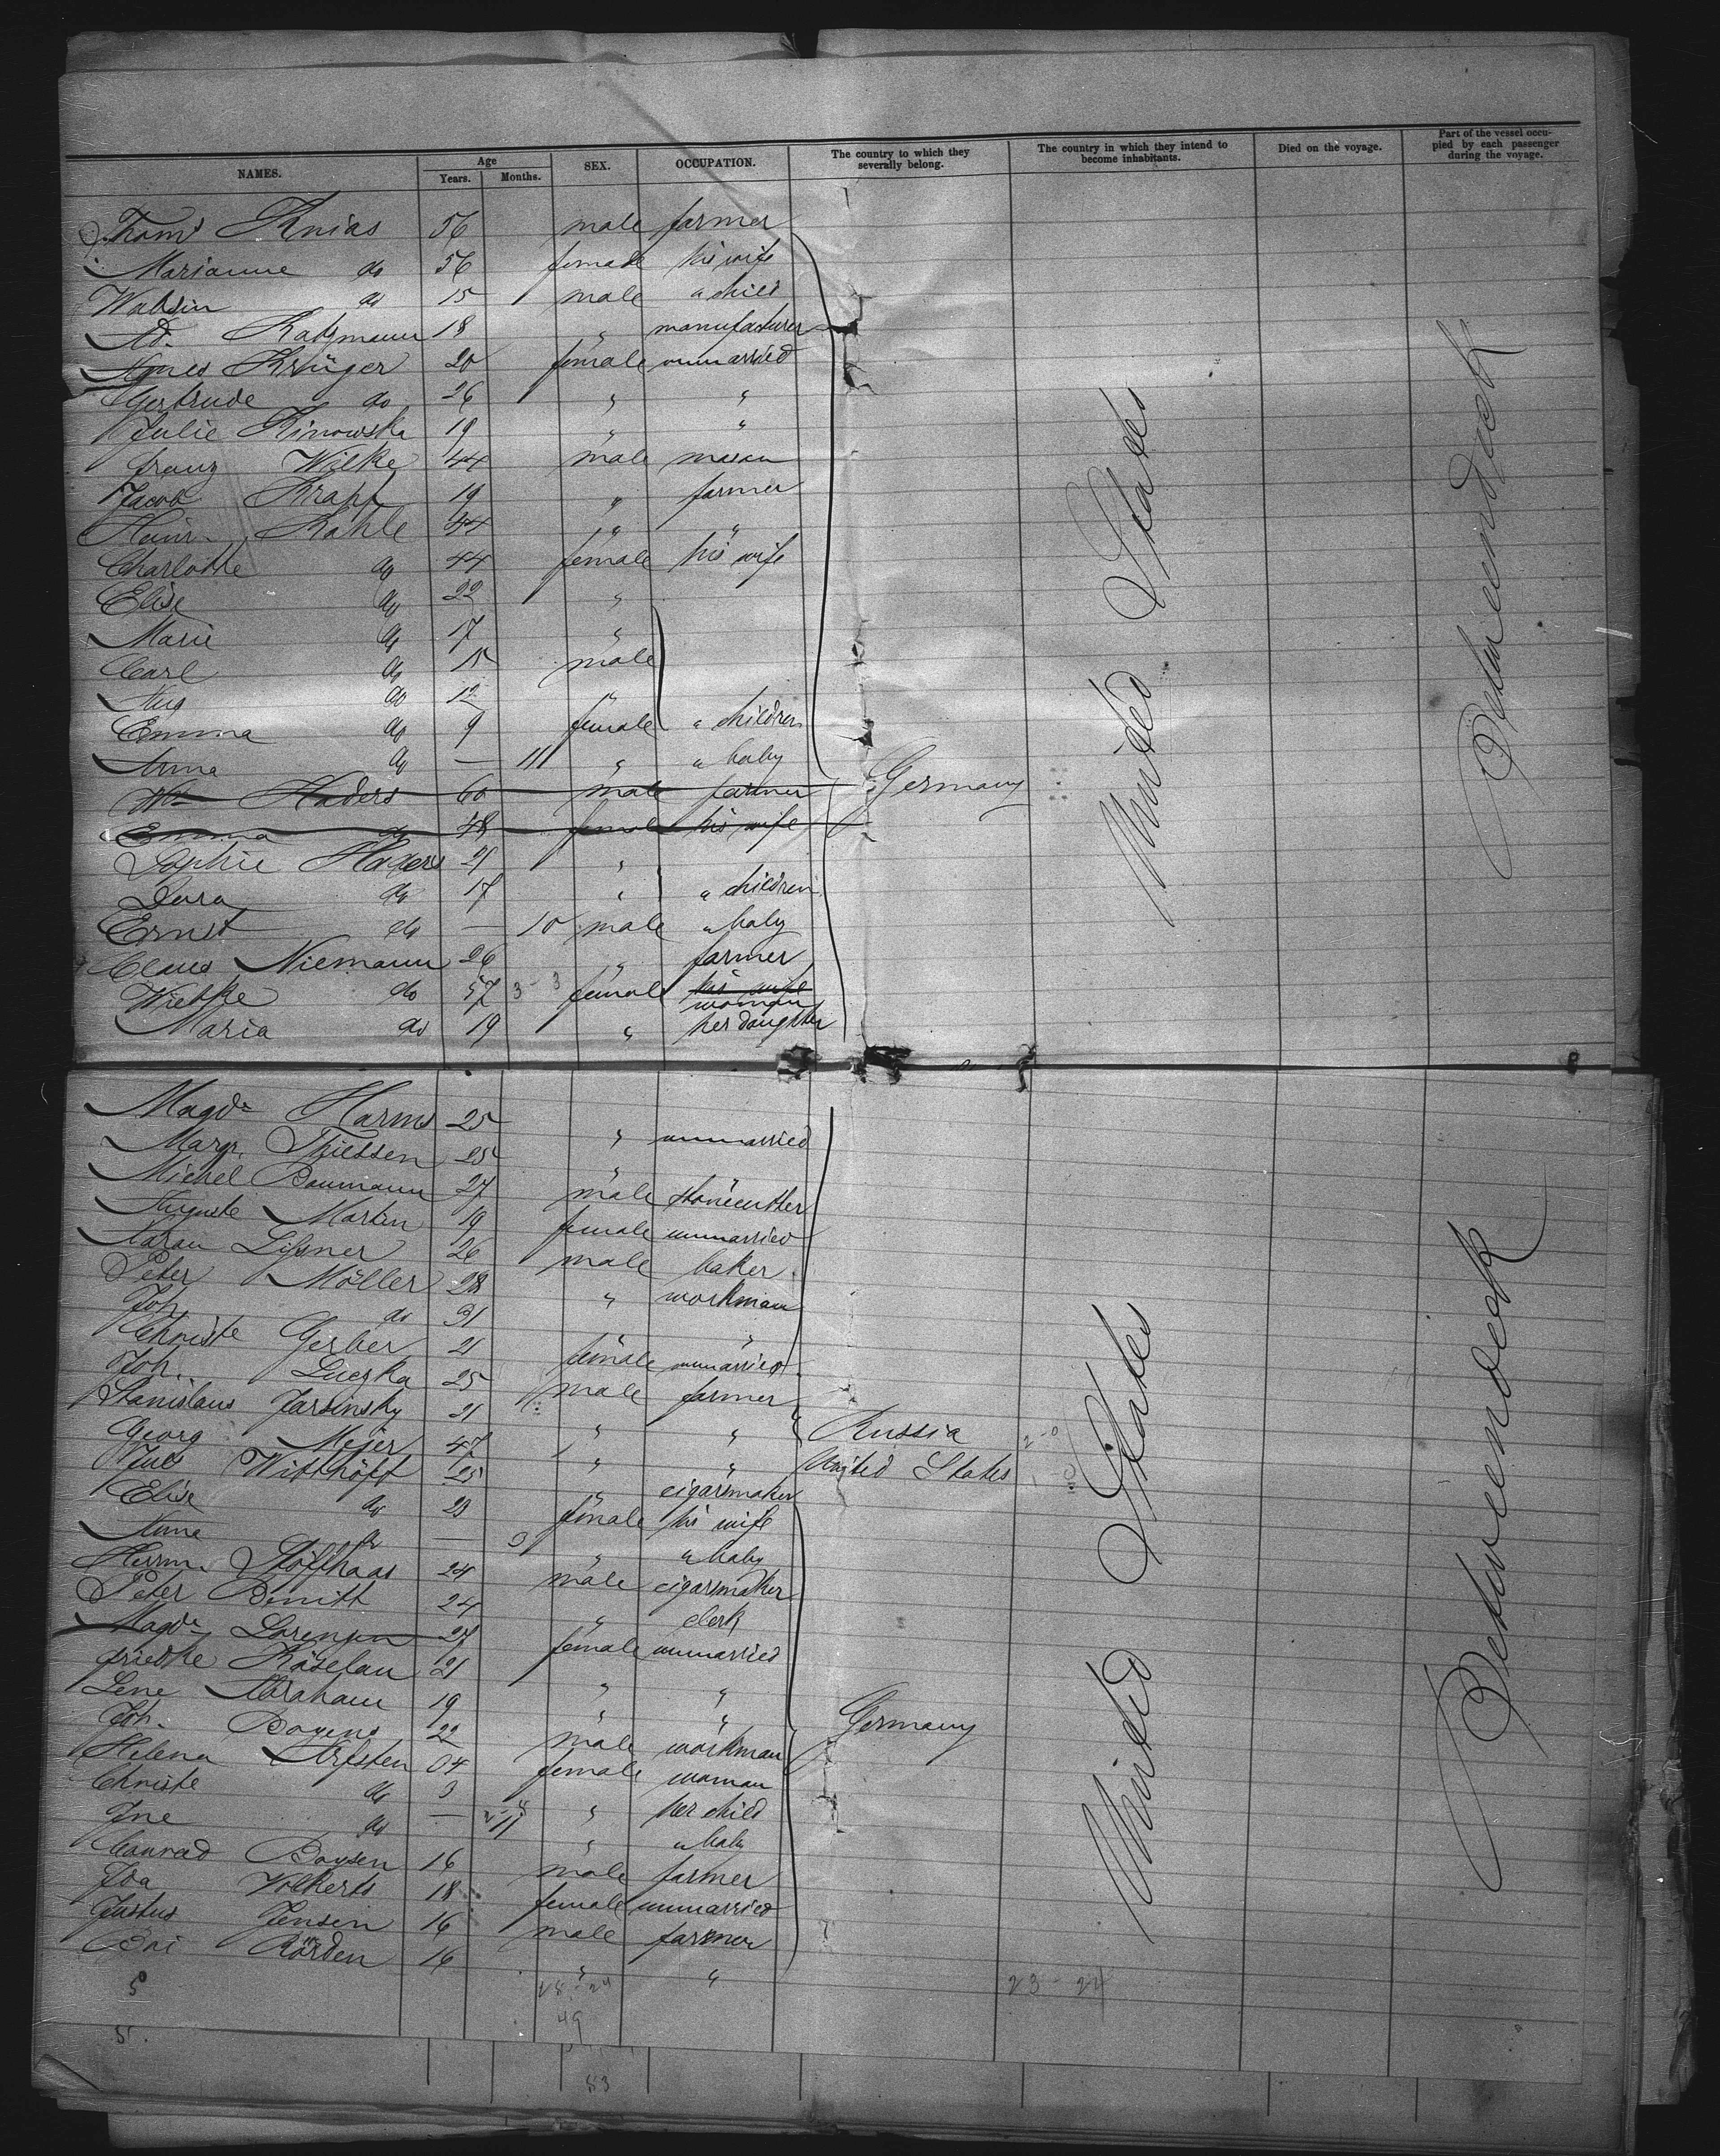 NAMES. Age Years. Months. SEX. OCCUPATION. The country to which they severally belong. The country in which they intend to become inhabitants. Died on the voyage. Part of the vessel occupied by each passenger during the voyage.
Thoms Knias 56 male farmer
Marianne do 56 female his wife
do 15 male a child
Ad. Katzmann 18 " manufacturer
Agnes Krüger 20 female unmarried
Gertrude do 26 " "
Julie 19 " "
Franz Wilke 44 male mason
Jacob Krapf 19 " farmer
Heinr. Kahle 44 " "
Charlotte do 44 female his wife
Elise do 22 "
Marie do 17 "
Carl do 15 male
Aug do 12 "
Emma do 9 female " children
Anna do — 11 " a baby
Wm Haders 60 male farmer Germany
Emma do 48 female his wife
Sophie Haders 21 "
Dora do 17 " " children
Ernst do — 10 male a baby
Claus Niemann 26 " farmer
Wiebke do 57 3-3 female his wife woman
Maria do 19 " her daughter
United States
Betweendeck
Magda Harms 25 " unmarried
Margr. Thiessen 25 "
Michel Baumann 27 male stonecutter
Auguste Martin 19 female unmarried
Lissner 26 male baker
Peter Möller 28 " workman
Joh. do 31 " "
Christe Gerber 21 female unmarried
Joh. Luczka 25 male farmer
Stanislaus Jarsinsky 21 " " Russia 2-0
Georg Meier 47 " " United States 1-0
Juls Witthöft 25 " cigarsmaker
Elise do 23 female his wife
Anna do — 3 " a baby
Herrm. 24 male cigarsmaker
Peter Benitt 24 " clerk
Magda Lorenzen 27 female unmarried
Friedke Röselau 21 " "
Lene Abraham 19 " " Germany
Joh. Boyens 22 male workman
Helena Arfsten 34 female woman
Christe do 3 " her child
Ine do — 11 " a baby
Conrad Boysen 16 male farmer
Ida Volkerts 18 female unmarried
Justus Jensen 16 male farmer
Boi Rörden 16 " "
United States
Betweendeck
5 28-24 23-24
49
5.
53